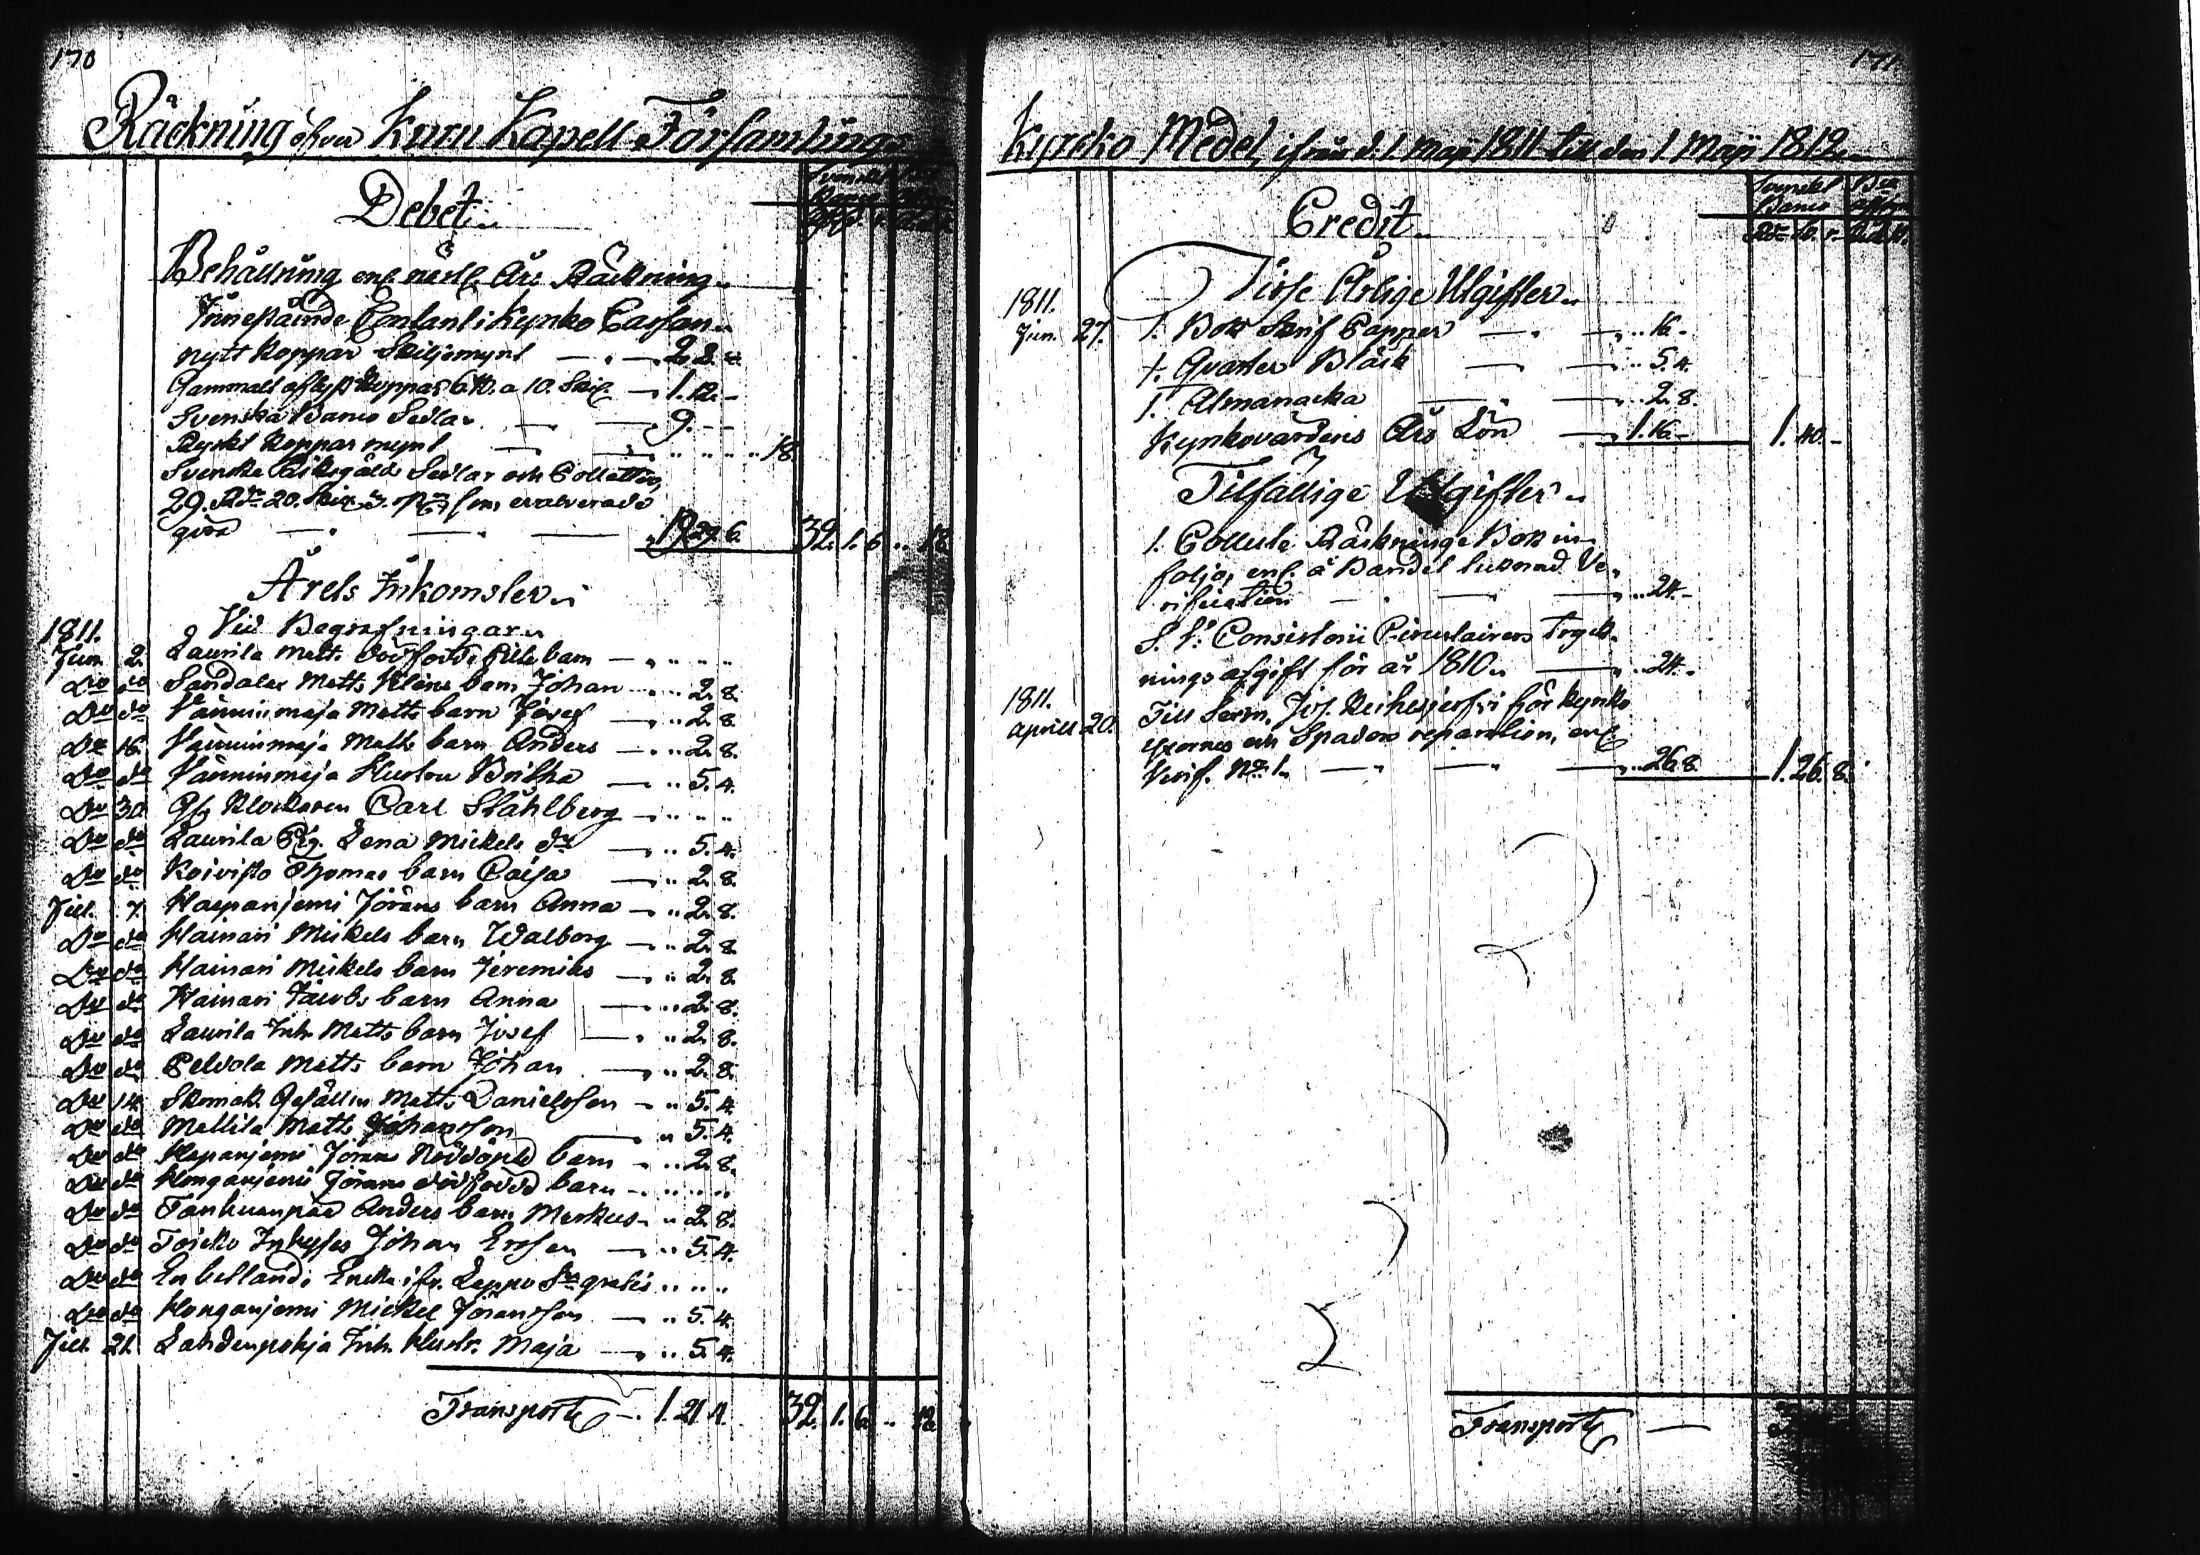 170
Räckning öfver Kumo Kapell Församlings
Debet
Behållning enl. näsll. Års Räckning
Innestående Contant i Kyrko Cassan
nytt Koppar Skiljemynt — 2. 2. "
Gammalt aflyst Koppar 6 ℔. a 10. Skil. — 1. 12. -
Svenska Banco Sedlar — 9. - -
Ryskt Koppar mynt — 18.
Svenska Riksgäld Sedlar och Polletter
29. Rdr 20. Skil. 3. som evalverade
göra — 19. 29. 6. 32. 1. 6 .. 18
Årets Inkomster
1811. Vid Begrafningar
Jun. 2. Laurila Matts dödfödde barn — " " " "
Do do Sandales Matts Kläns barn Johan — " 2. 8.
Do do Vänninmaja Matts barn Josef — " 2. 8
Do 16. Vänninmaja Matts barn Anders — " 2. 8.
Do do Vänninmaja Hustru Britha — " 5. 4.
Do 30. Klockaren Carl Ståhlberg — " " " "
Do do Laurila Pig. Lena Mickels dr — " 5. 4.
Do do Koivisto Thomas barn Caisa — " 2. 8.
Jul. 7. Haapaniemi Jörans barn Anna — " 2. 8.
Do do Hainari Mickels barn Walborg — " 2. 8
Do do Hainari Mickels barn Jeremias — " 2. 8
Do do Hainari Jacobs barn Anna — " 2. 8.
Do do Laurila Inh. Matts barn Josef — " 2. 8.
Do do Peldola Matts barn Johan — " 2. 8.
Do 14. Skomak. Gesällen Matts Danielsson — " 5. 4.
Do do Mattila Matts Johansson — " 5. 4.
Do do Jörans Nöddöpte barn — " 2. 8.
Do do Honganjemi Jörans dödfödd barn — " " " "
Do do Tanhuanpää Anders barn Markus — " 2. 8.
Do do Toicko Inhyses Johan Ersson — " 5. 4.
Do do En betlande Encka ifr. Lappo Sn gratis " " "
Do do Honganjemi Mickel Jöransson — " 5. 4.
Jul. 21. Lahdenpohja Inh. Hustr. Maja — " 5. 4.
Transport — 1. 21. 4. 32. 1. 6 .. 18.
171
Kyrcko Medel, ifrån d. 1. Maji 1811 till den 1. Maji 1812
Credit
Svenskt Banco
1811. Visse Årlige Utgifter
Jun. 27. 1. Bok Skrif Papper — " 16. -
1. Qvarter Bläck — " 5. 4.
1. Almanacka — " 2. 8.
Kyrkovärdens Års Lön — 1. 16. - 1. 40. -
Tilfällige Utgifter
1. Collect Räcknings Bok in
folio, enl. å Bandet tecknad Ve-
rification — " 24. -
S. V. Consistorii Circulairers Tryck-
nings afgift för år 1810 — " 24. -
1811.
Aprill 20. Till för Kyrko
och Spadens reparation, enl.
Verif. No 1. — " 26. 8. 1. 26. 8.
Transport —